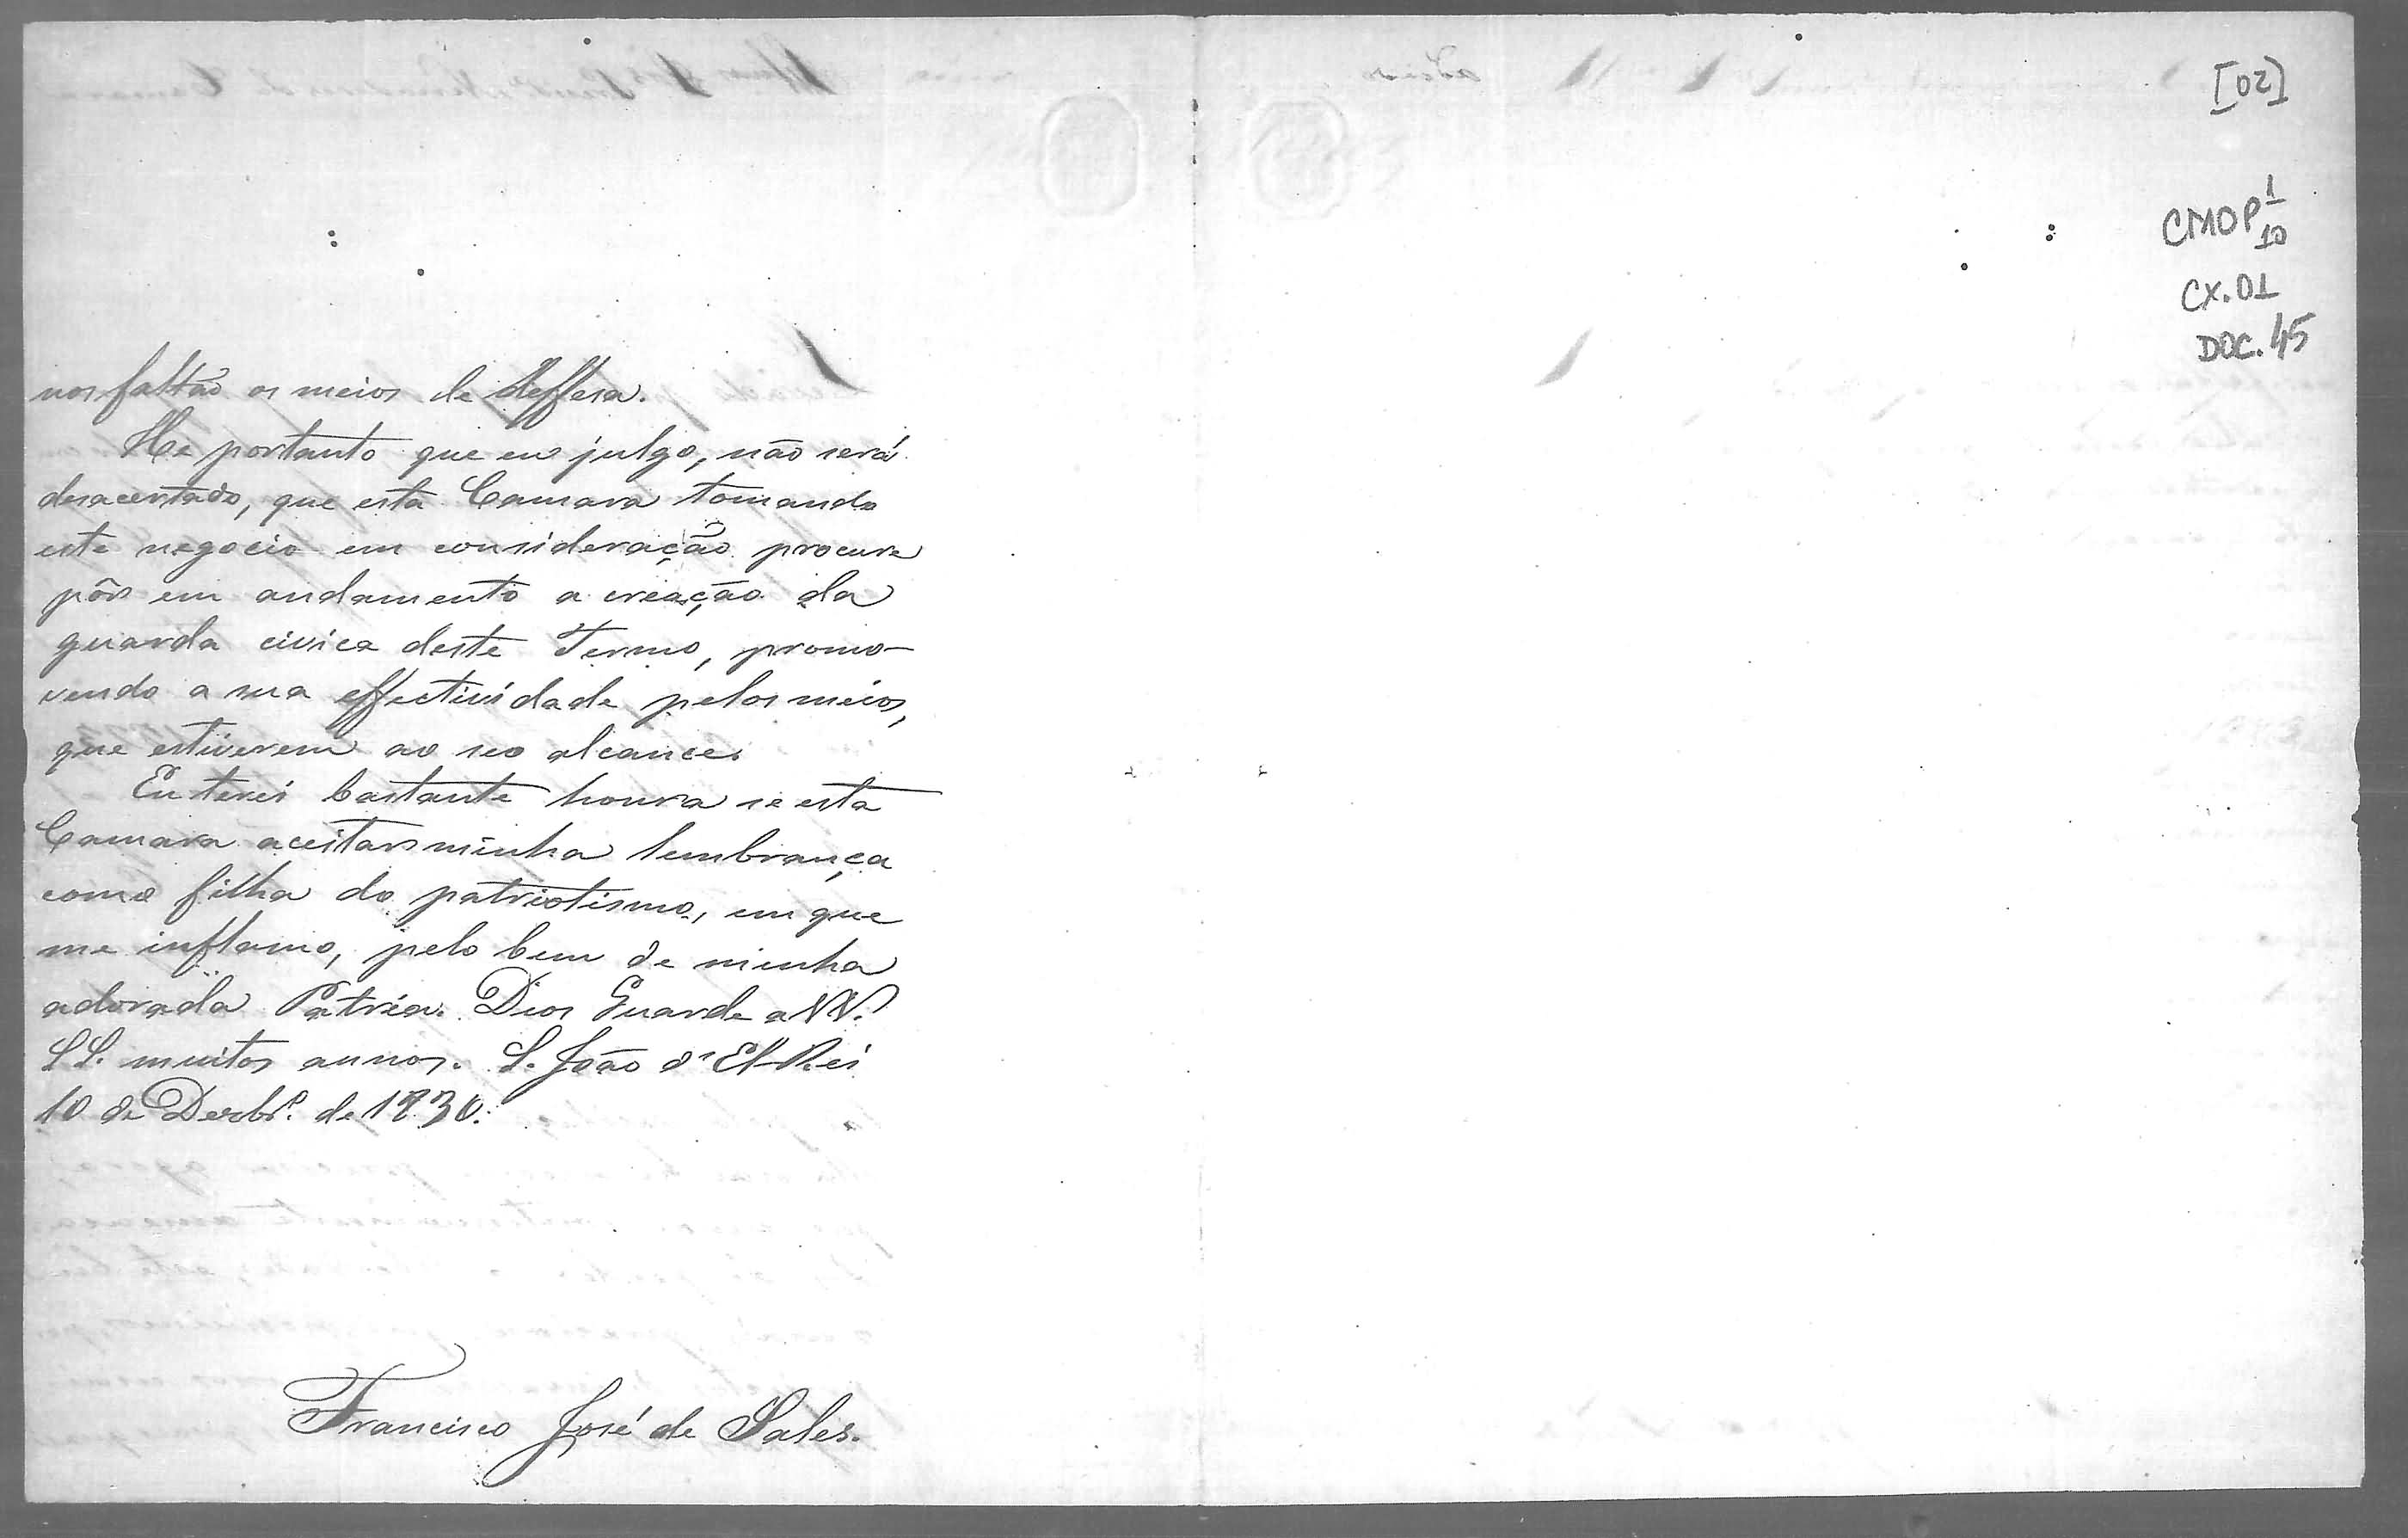 nos faltão os meios de deffesa.
He portanto que eu julgo, não será
desacertado, que esta Camara tomando
este negocio em consideração procure
pôr em andamento a creação da
guarda civica deste Termo, promo-
vendo a sua effectividade pelos meios,
que estiverem ao seo alcance.
Eu terei bastante honra se esta
Camara aceitar minha lembrança
como filha do patriotismo, em que
me inflamo, pelo bem de minha
adorada Patria. Dios Guarde a VV.
SS. muitos annos. S. João d'El-Rei
10 de Dezbrº. de 1830.
Francisco José de Sales.
[02]
CMOP 1/10
CX. 01
DOC. 45